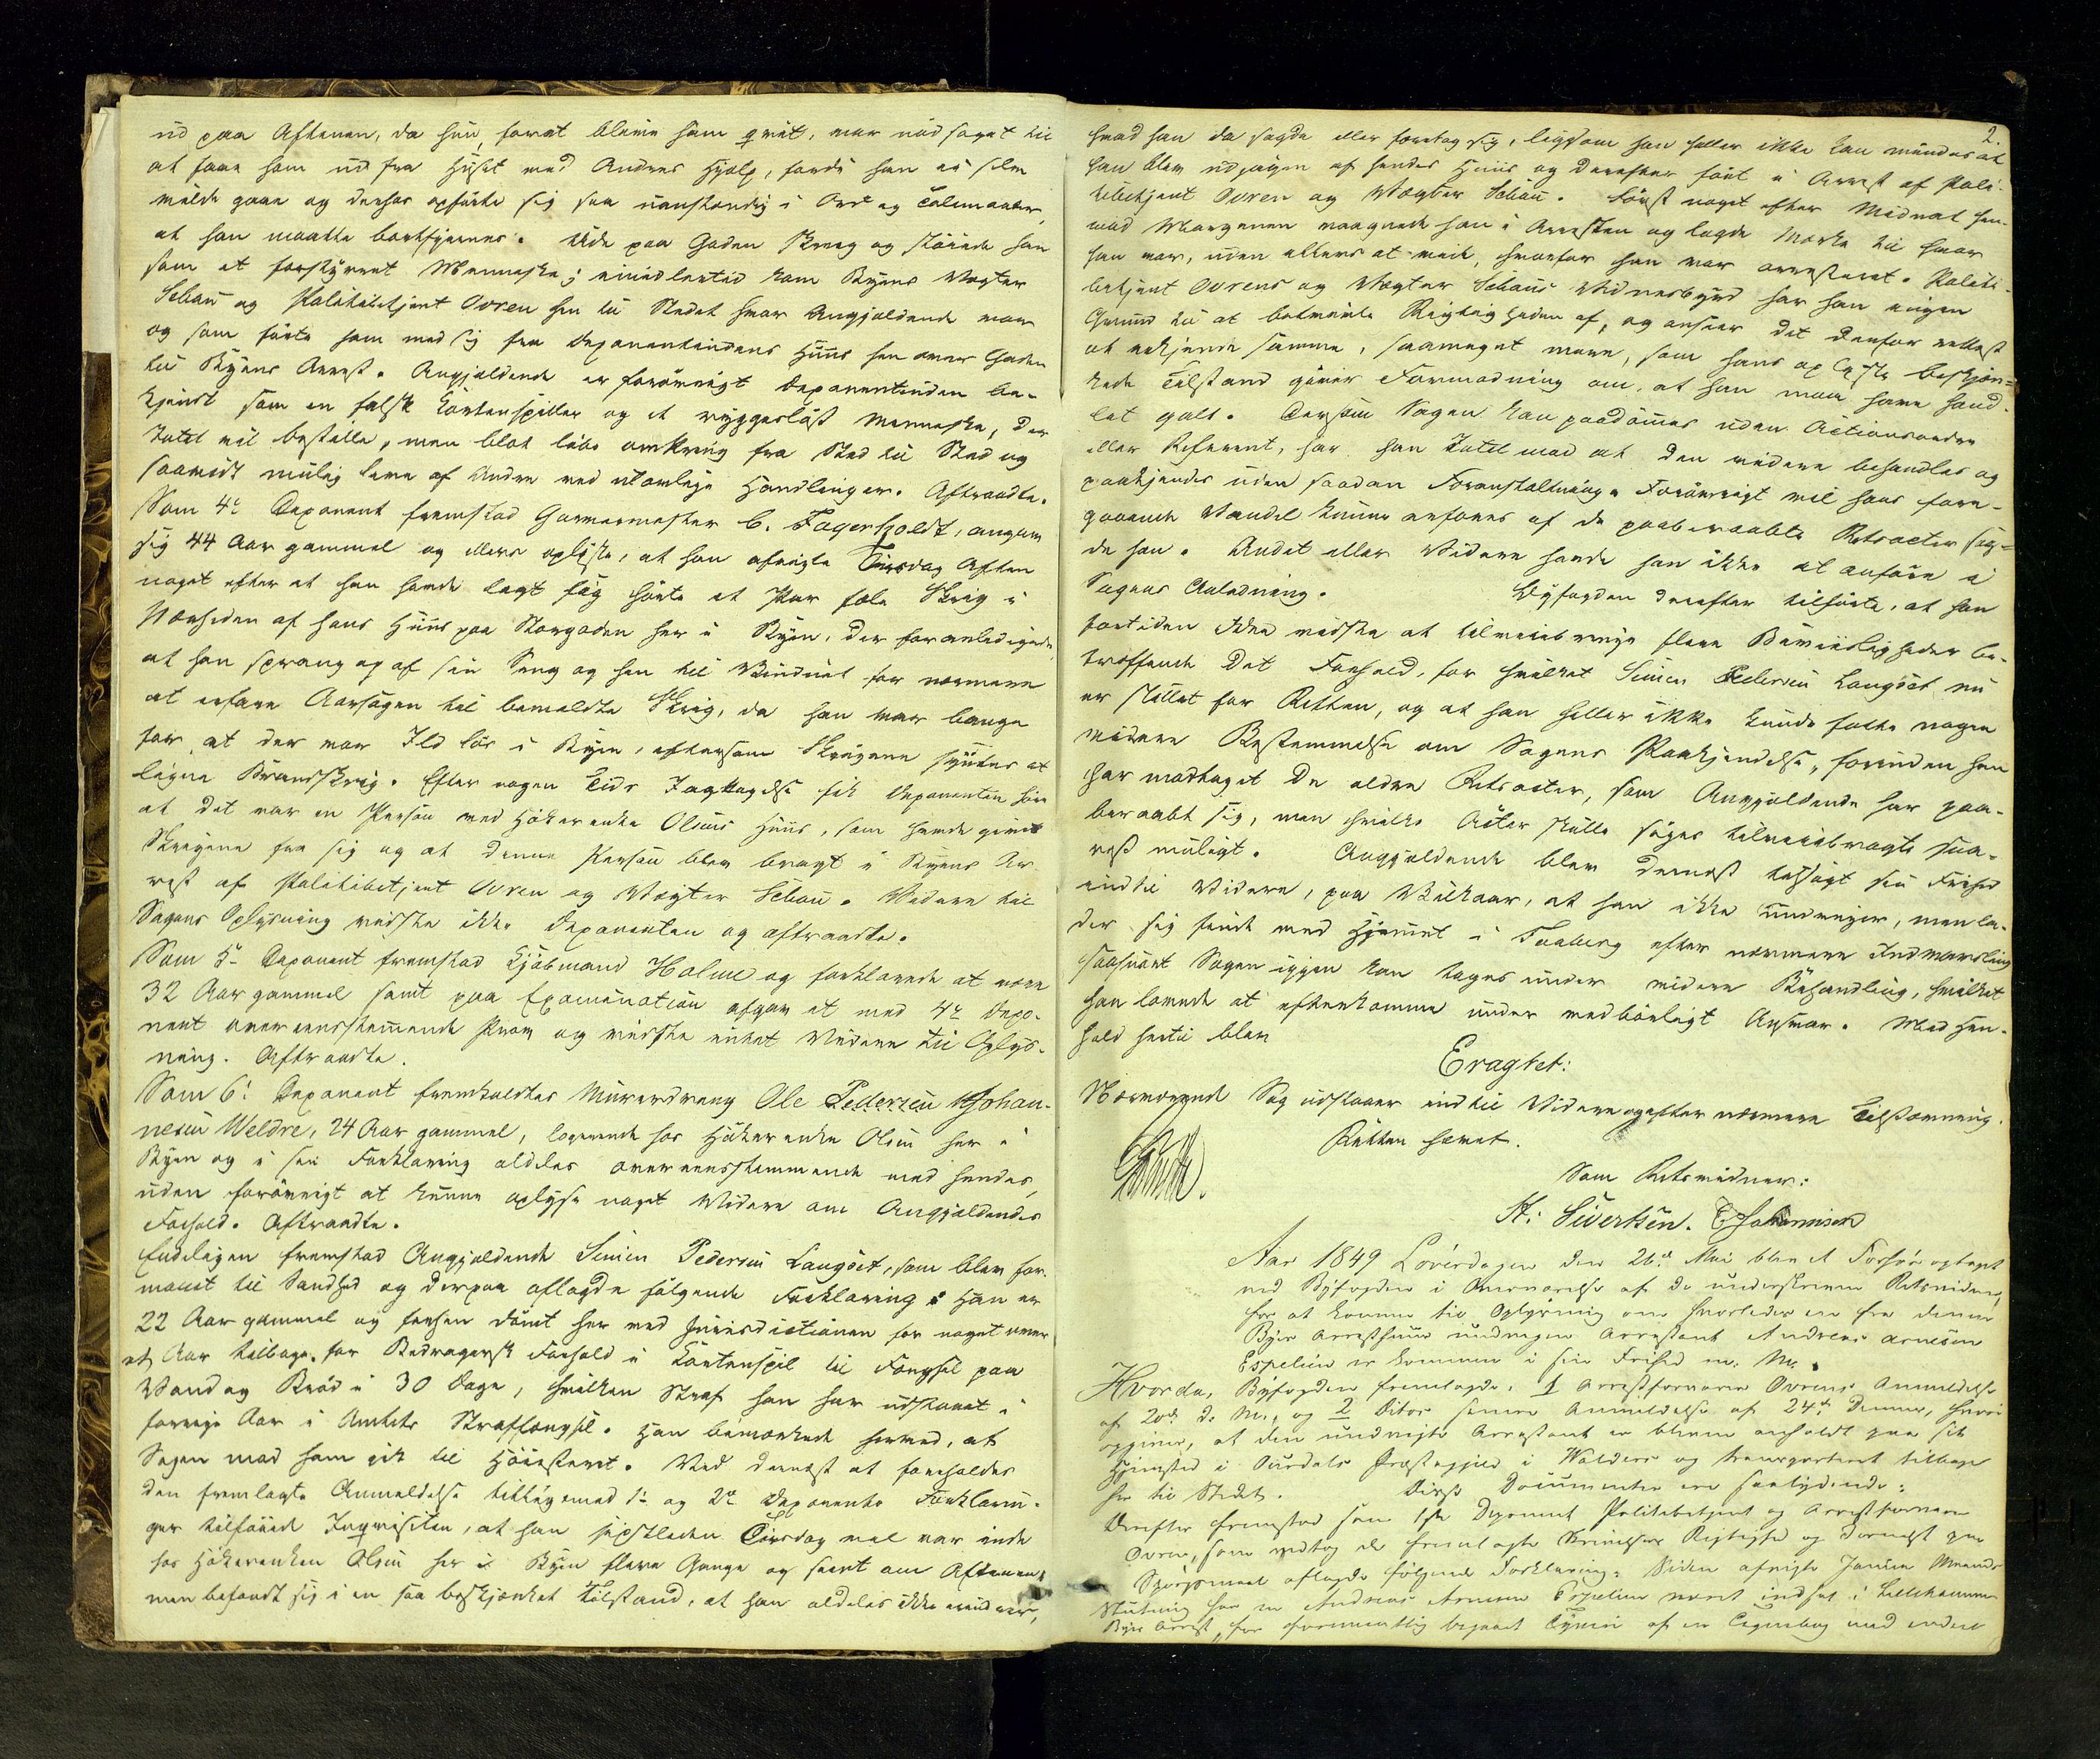 ud paa Aftenen, da hun, forat blive ham qvit, var nødsaget til
at faae ham ud fra Huset med Andres Hjælp, fordi han ei selv
vilde gaae og derhos opførte sig saa uanstændig i Ord og Talemaader,
at han maatte bortfjernes. Ude paa Gaden skreg og støiede han
som et forstyrret Menneske; imidlertid kom Byens Vægter
Schou og Politibetjent Ovren hen til Stedet hvor Angjældende var
og som førte ham med sig fra Deponentindens Huus hen over Gaden
til Byens Arrest. Angjældende er forøvrigt Deponentinden be-
kjendt som en falsk Kortenspiller og et ryggesløst Menneske, der
Intet vil bestille, men blot løbe omkring fra Sted til Sted og
saavidt mulig leve af Andre ved ulovlige Handlinger. Aftraadte.
Som 4de Deponent fremstod Garvermester C. Fagerholdt, angav
sig 44 Aar gammel og ellers oplyste, at han afvigte Tirsdag Aften
noget efter at han havde lagt sig hørte et Par fæle Skrig i
Nærheden af hans Huus paa Storgaden her i Byen, der foranledigede,
at han sprang op af sin Seng og hen til Vinduet for nærmere
at erfare Aarsagen til bemeldte Skrig, da han var bange
for at der var Ild løs i Byen, eftersom Skrigene syntes at
ligne Brandskrig. Efter nogen Tids Iagttagelse fik Deponenten høre
at det var en Person ved Høkerenke Olsens Huus, som havde givet
Skrigene fra sig og at denne Person blev bragt i Byens Ar-
rest af Politibetjent Ovren og Vægter Schou. Videre til
Sagens Oplysning vidste ikke Deponenten og aftraadte.
Som 5te Deponent fremstod Kjøbmand Holme og forklarede at være
32 Aar gammel samt paa Examination afgav et med 4de Depo-
nent overeensstemmende Prov og vidste intet Videre til Oplys-
ning. Aftraadte.
Som 6te Deponent fremkaldtes Murerdreng Ole Pedersen Johan-
nesen Weldre, 24 Aar gammel, logerende hos Høkerenke Olsen her i
Byen og i sin Forklaring aldeles overeensstemmende med hendes,
uden forøvrigt at kunne oplyse noget Videre om Angjældendes
Forhold. Aftraadte.
Endeligen fremstod Angjældende Simen Pedersen Laugset, som blev for-
manet til Sandhed og derpaa aflagde følgende Forklaring: Han er
22 Aar gammel og forhen dømt her ved Jurisdictionen for noget over
et Aar tilbage, for Bedragersk Forhold i Kortenspil til Fængsel paa
Vand og Brød i 30 Dage, hvilken Straf han har udstaaet i
forrige Aar i Amtets Straffængsel. Han bemærkede herved, at
Sagen mod ham gik til Høiesteret. Ved dernæst at foreholdes
den fremlagte Anmeldelse tilligemed 1ste og 2den Deponents Forklarin-
ger tilføiede Inqvisiten, at han sidstleden Tirsdag vel var inde
hos Høkerenken Olsen her i Byen flere Gange og seent om Aftenen,
men befandt sig i en saa beskjænket Tilstand, at han aldeles ikke erindrer,
2.
hvad han da sagde eller foretog sig, ligesom han heller ikke kan mindes at
han blev udjagen af hendes Huus og derefter ført i Arrest af Poli-
tibetjent Ovren og Vægter Schou. Først noget efter Midnat hen-
mod Morgenen vaagnede han i Arresten og lagde Mærke til hvor
han var, uden ellers at vide, hvorfor han var arresteret. Politi-
betjent Ovrens og Vægter Schous Vidnesbyrd har han ingen
Grund til at betvivle Rigtigheden af, og anseer det derfor rettest
at vedkjende samme, saameget mere, som hans oplyste beskjæn-
kede Tilstand giver Formodning om, at han maa have hand-
let galt. Dersom Sagen kan paadømmes uden Actionsordre
eller Referent, har han Intet mod at den videre behandles og
paakjendes uden saadan Foranstaltning. Forøvrigt vil hans fore-
gaaende Vandel kunne erfares af de paaberaabte Retsacter sag-
de han. Andet eller Videre havde han ikke at anføre i
Sagens Anledning. Byfogden derefter tilførte, at han
fortiden ikke vidste at tilveiebringe flere Beviisligheder be-
træffende det Forhold, for hvilket Simen Pedersen Laugset nu
er stillet for Retten, og at han heller ikke kunde fatte nogen
videre Bestemmelse om Sagens Paakjendelse, forinden han
har modtaget de ældre Retsacter, som Angjældende har paa-
beraabt sig, men hvilke Acter skulle søges tilveiebragte sna-
rest muligt. Angjældende blev dernæst tilsagt sin Frihed
indtil Videre, paa Vilkaar, at han ikke undviger, men la-
der sig finde ved Hjemmet i Faaberg efter nærmere Indvarsling
saasnart Sagen igjen kan tages under videre Behandling, hvilket
han lovede at efterkomme under medbørligt Ansvar. Med Hen-
hold hertil blev
Eragtet:
Nærværende Sag udstaaer indtil Videre og efter nærmere Tilstævning.
Retten hævet.
Som Retsvidner:
H: Sivertsen. E Johannisen
Aar 1849 Løverdagen den 26de Mai blev et Forhør optaget
ved Byfogden i Overværelse af de underskrevne Retsvidner,
for at komme til Oplysning om hvorledes en fra denne
Byes Arresthuus undvegen Arrestant Andreas Arnesen
Espelien er kommen i sin Frihed m. M.
Hvorda, Byfogden fremlagde, 1 Arrestforvarer Ovrens Anmeldelse
af 20de d. M., og 2 Ditos senere Anmeldelse af 24de Dennes, hvori
opgives, at den undvegte Arrestant er bleven anholdt paa sit
Hjemsted i Aurdals Præstegjeld i Valders og transporteret tilbage
her til Stedet. Disse Documenter ere saalydende:
Derefter fremstod som 1ste Deponent Politibetjent og Arrestforvarer
Ovren, som vedtog de fremlagte Skrivelsers Rigtighed og dernæst paa
Spørgsmaal aflagde følgende Forklaring: Siden afvigte Januar Maaneds
Slutning har en Andreas Arnesen Espelien været indsat i Lillehammer
Byes Arrest, for formentlig begaaet Tyveri af en Tegnebog med endeel